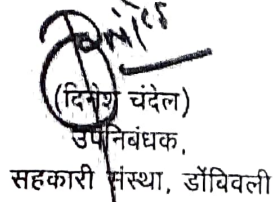 (दिनेश चंदेल)
उपनिबंधक,
सहकारी संस्था, डोंबिवली